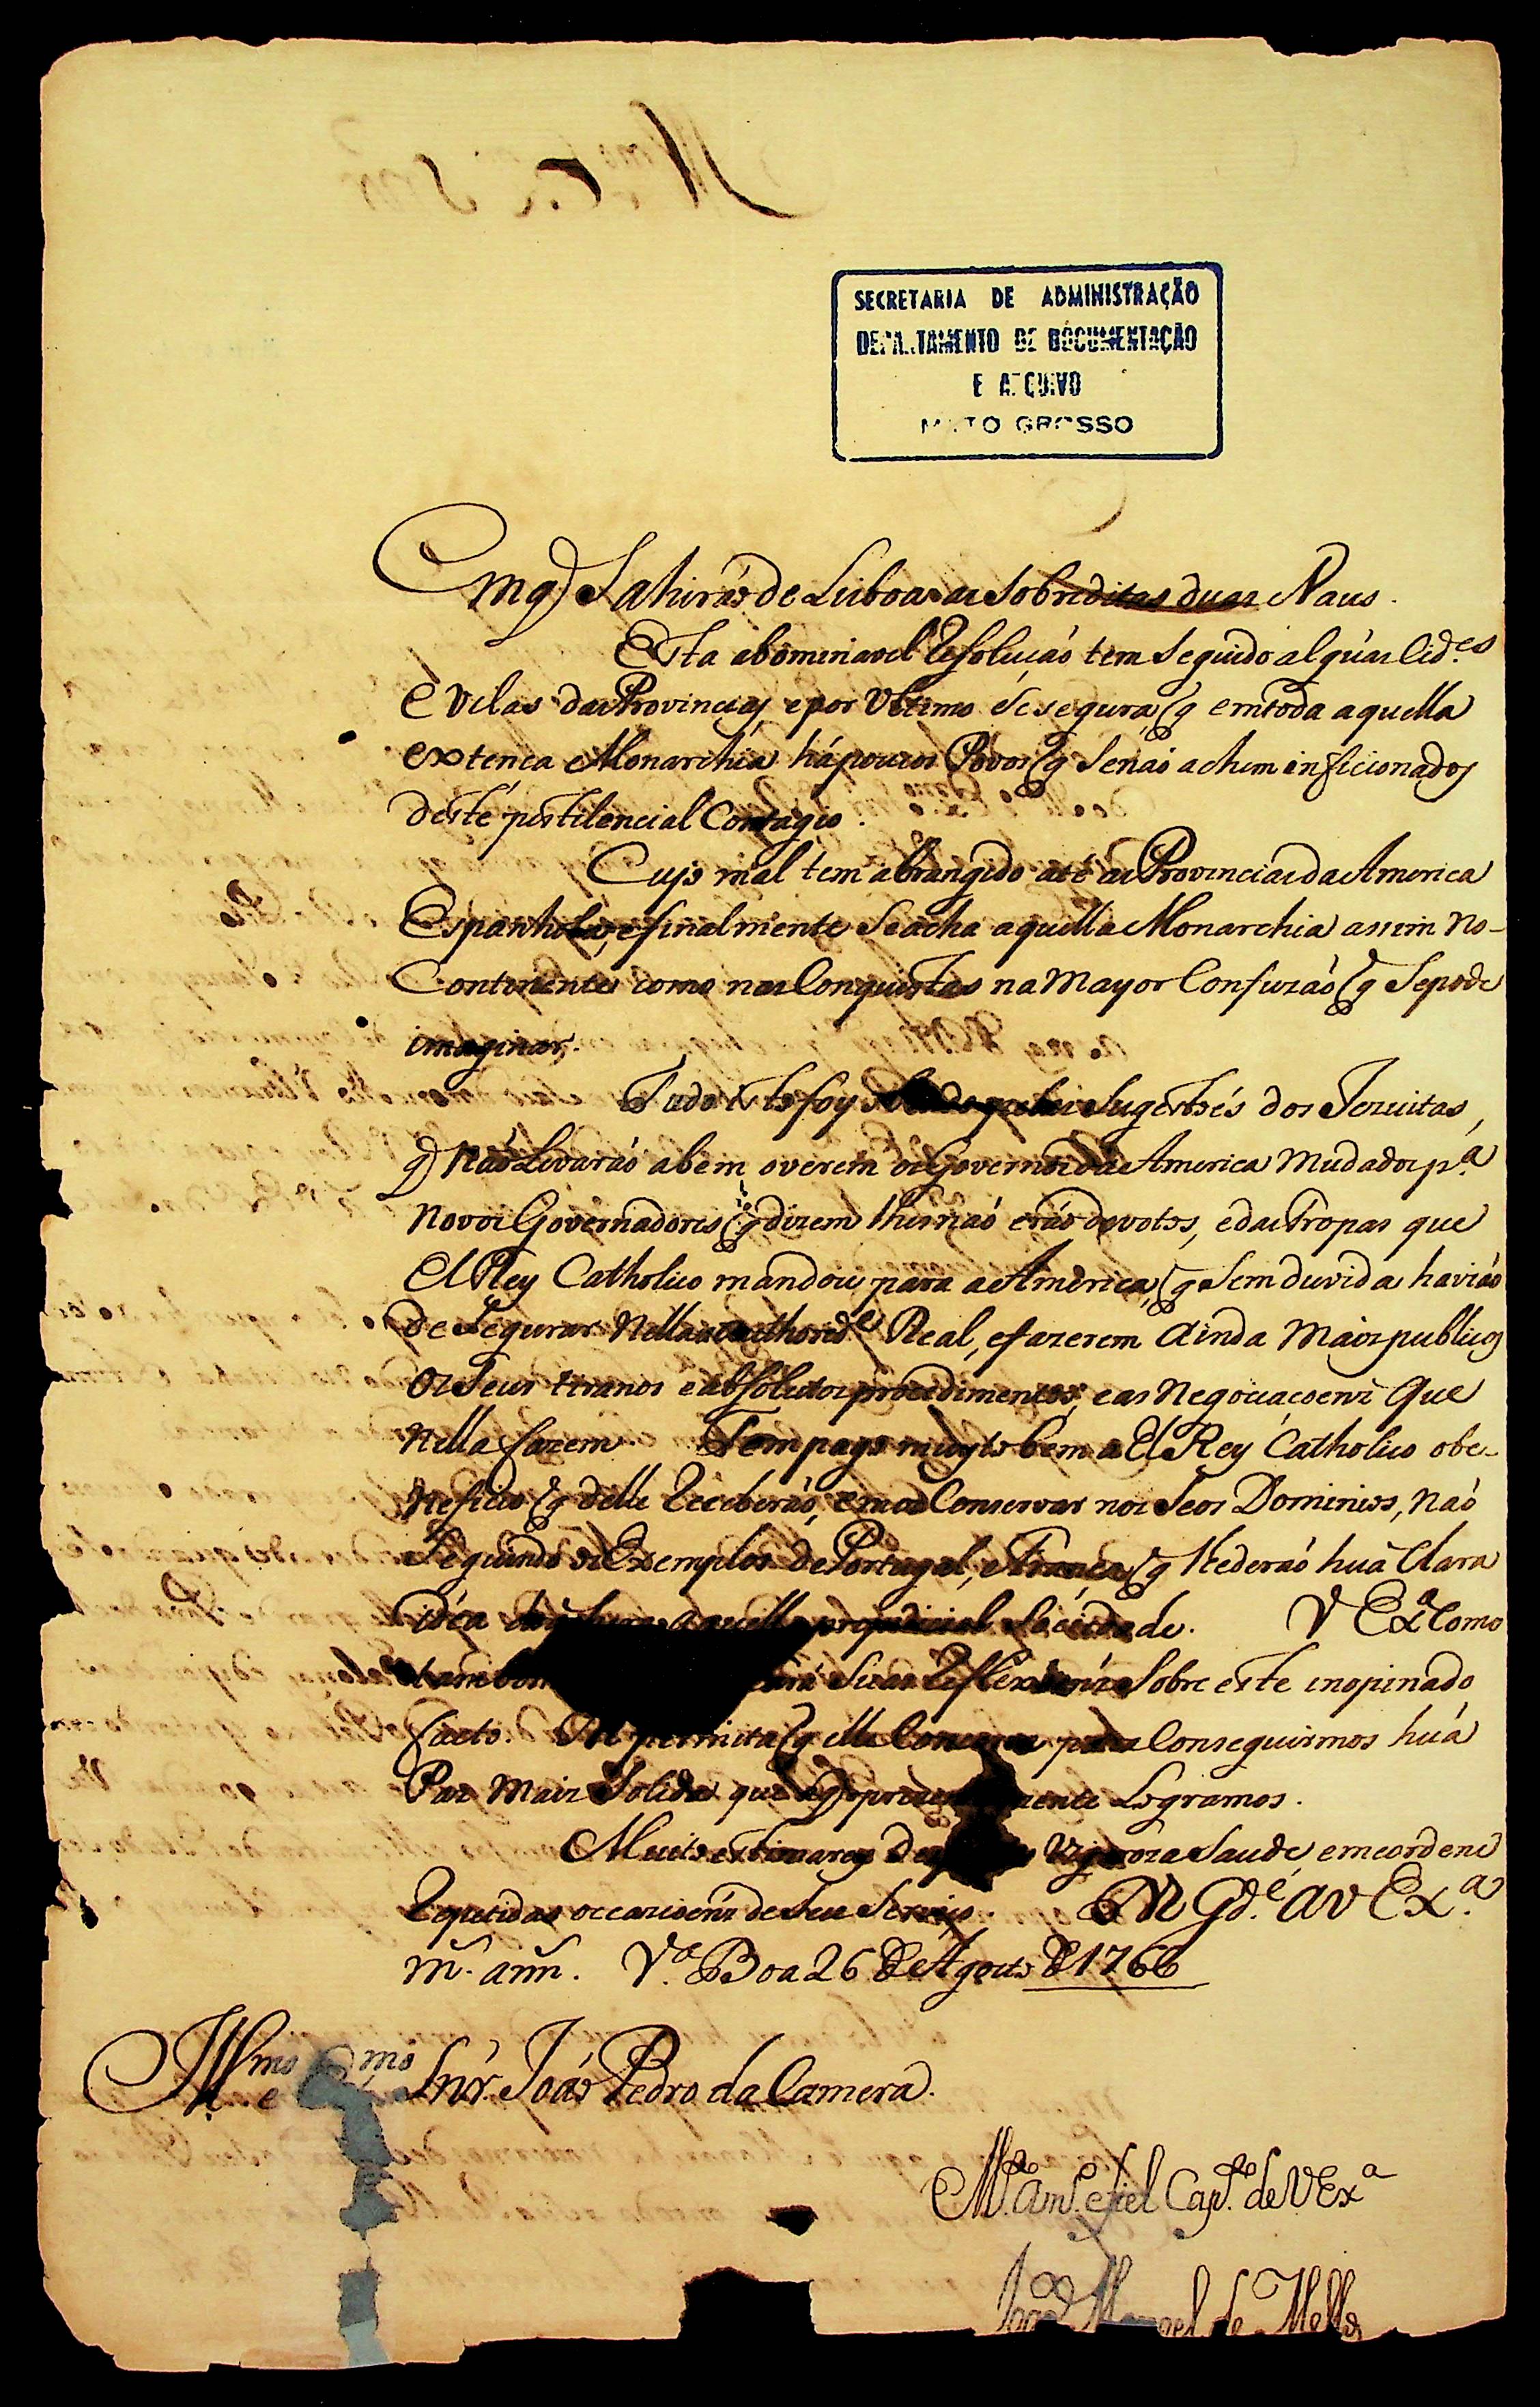 SECRETARIA DE ADMINISTRAÇÃO
DEPARTAMENTO DE DOCUMENTAÇÃO
E ARQUIVO
MATO GROSSO
Em q̃ Sahiraõ de Lisboa as Sobreditas duas Naus.
Esta abominavel Resoluçaõ tem Seguido algũas Cid.es
e Vilas das Provincias, e por Ultimo Se segura, q̃ em toda aquella
extenca Monarchia há poucos Povos, q̃ Se naó achem inficionados
deste pestilencial Contagio.
Cujo mal tem abrangido até as Provincias da America
Espanhola, e finalmente Se acha aquella Monarchia assim no
Continente como nas Conquistas na Mayor Confuzaõ q̃ Se pode
imaginar.
Tudo isto foy Sugestoés dos Jezuitas,
q̃ Naõ Levaraõ a bem o verem os Governos da America Mudados p.a
Novos Governadores, q̃ dizem lhes naó eraõ devotos, e das Tropas que
El Rey Catholico mandou para a America, q̃ Sem duvida haviaõ
de Segurar Nella a authorid.e Real, e fazerem Ainda Mais publicos
Os Seus tiranos e absolutos procedimentos, e as Negociaçoens Que
Nella fazem Tem pago muyto bem a El Rey Catholico o be-
neficio q̃ delle Receberaõ, em os Conservar nos Seos Dominios, Naó
Seguindo os Exemplos de Portugal, e França, q̃ lhe deraó huã Clara
idéa aquella prejudicial Sociedade. V Ex.a Como
tambem fará Suas Reflexoens Sobre este inopinado
facto. D.s permita q̃ elle Concorra para Conseguirmos huá
Paz Mais Solida que a q̃ prezentemente Logramos.
Muito estimarey Vigoroza Saude e me ordene
Repetidas occazioens de Seu Serviço. D.s G.de a V Ex.a
m.s ann.s V.a Boa 26 de Agosto de 1766
Ill.mo e Snr. Joaõ Pedro da Camera.
M.to Am.o e fiel Cap.to de V Ex.a
Joaõ Manoel de Mello